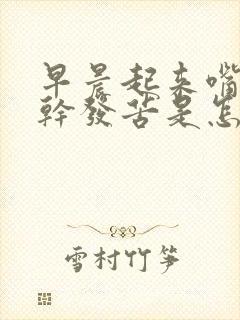 早晨起来嘴
幹發苦是怎
雪村竹笋